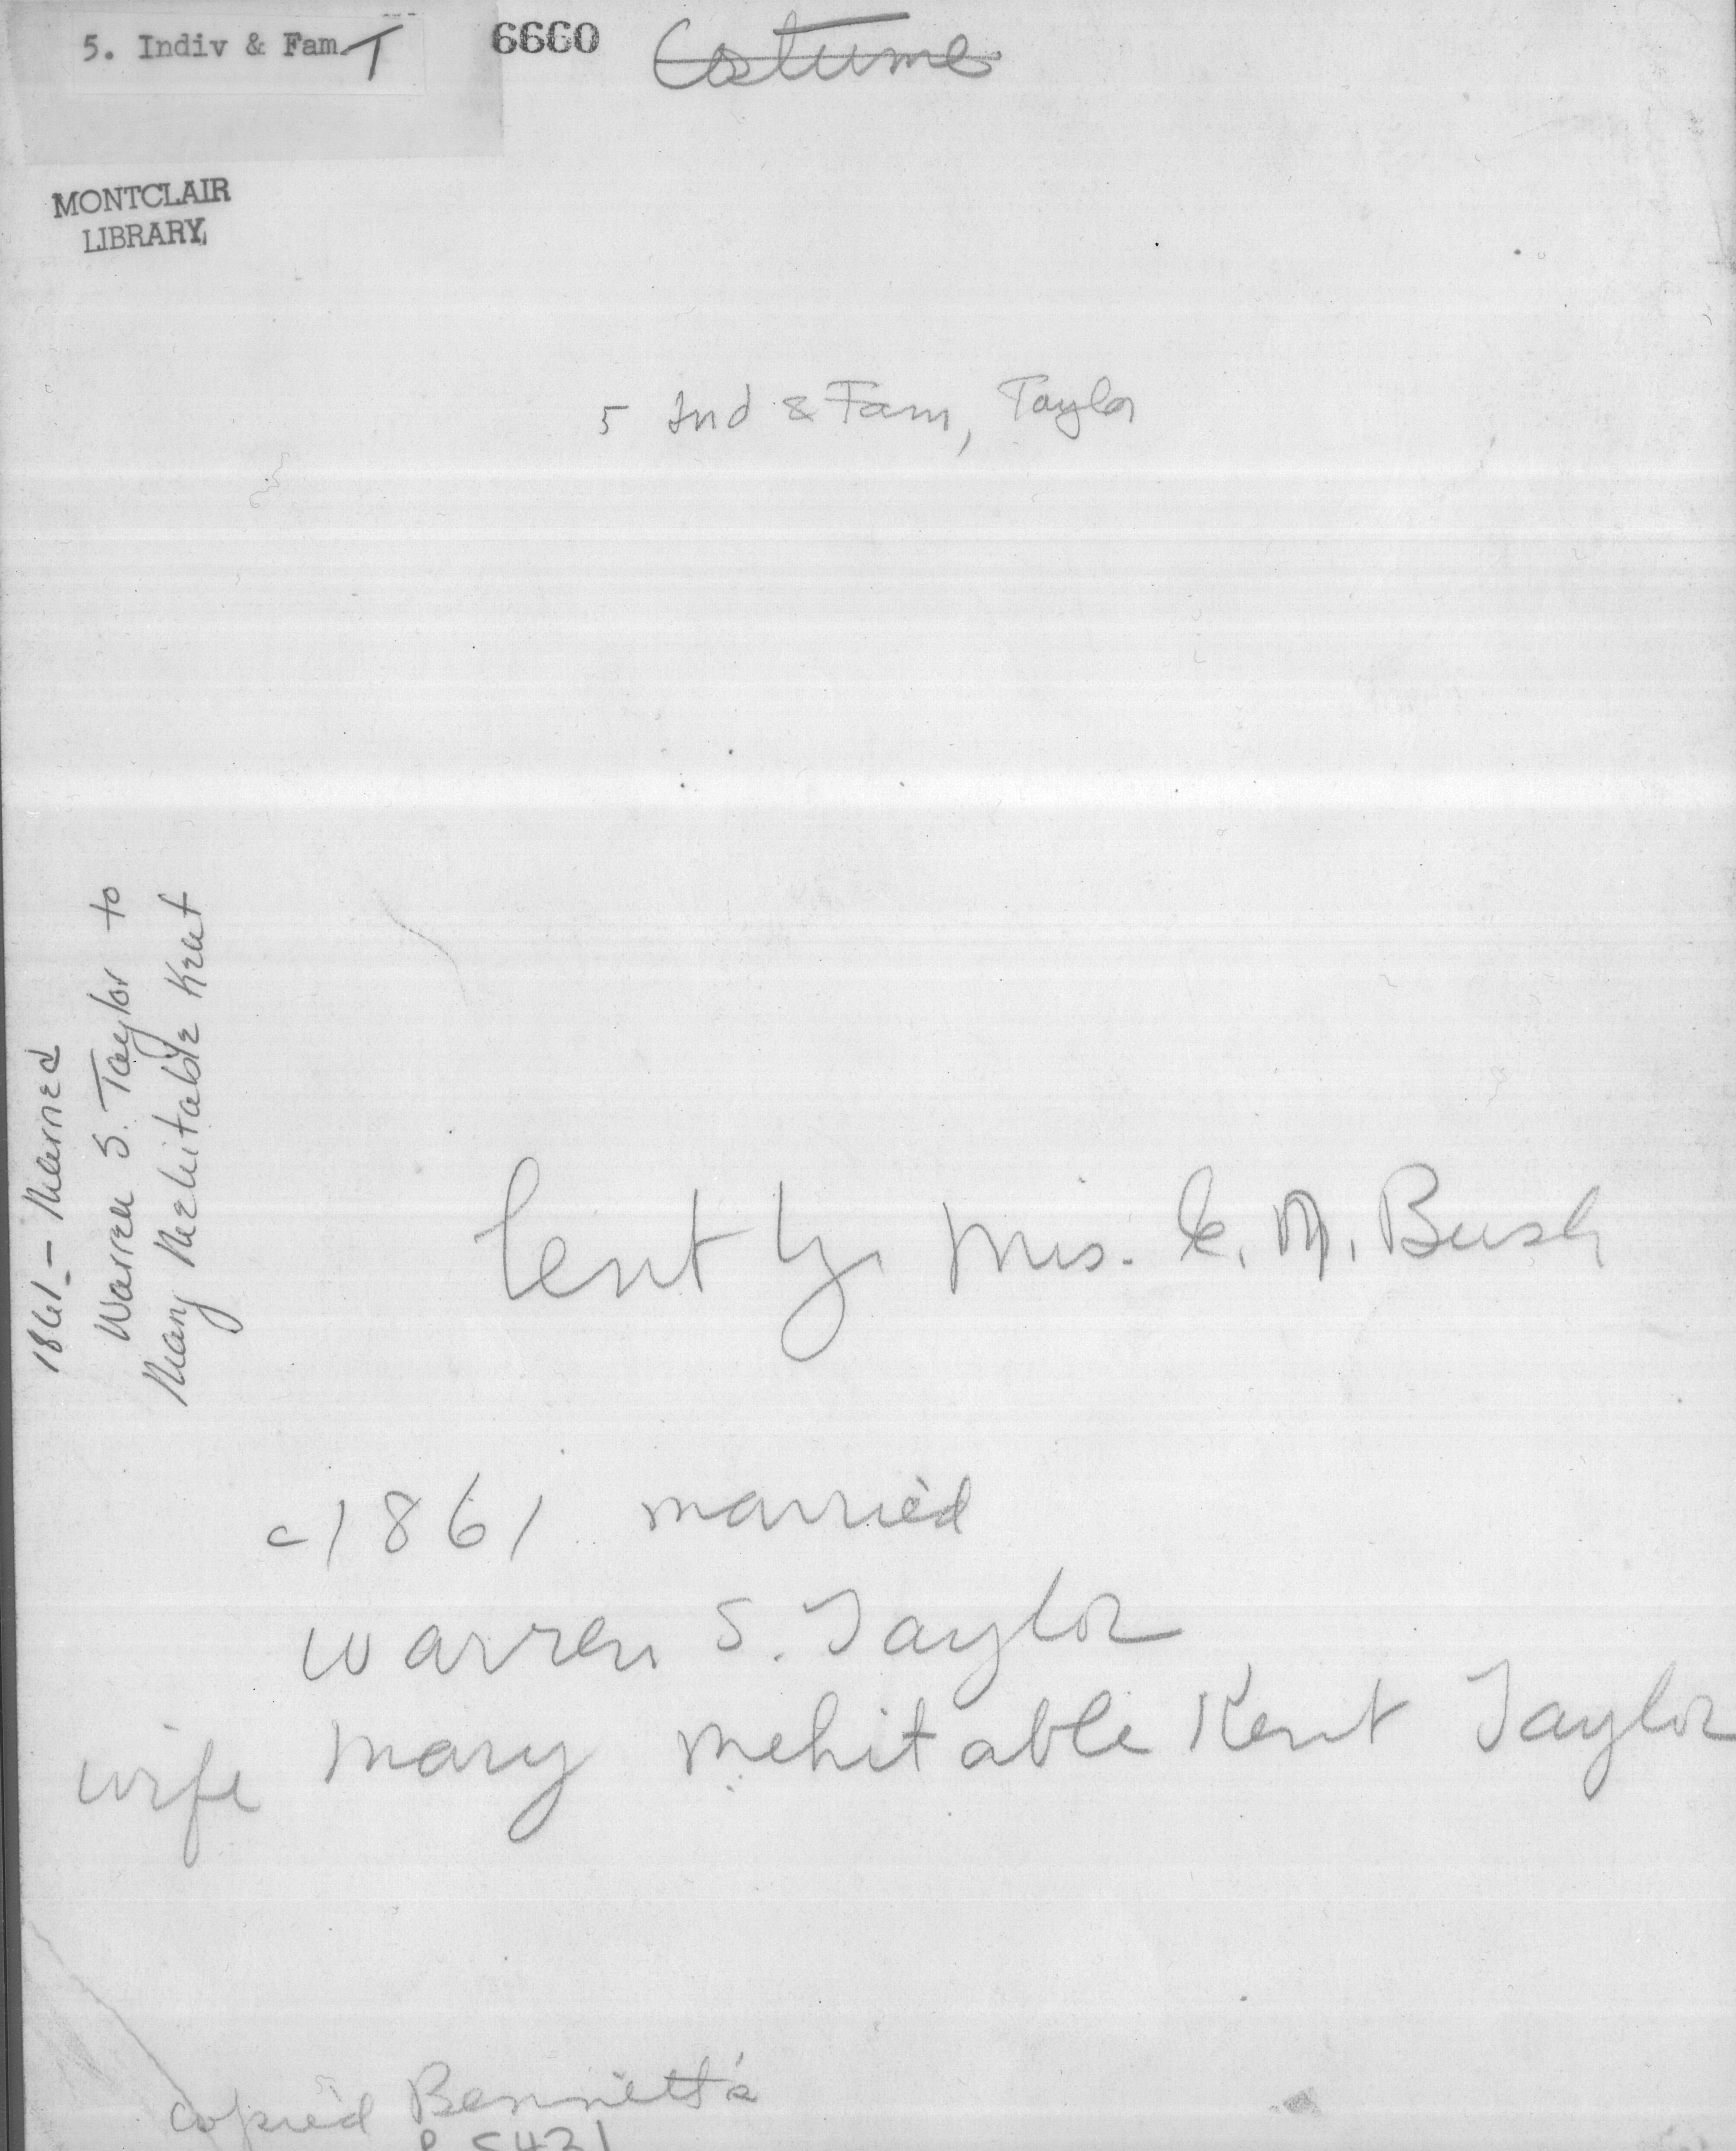 5. Indiv & Fam. T
6660
Costume
MONTCLAIR
LIBRARY
5 Ind & Fam, Taylor
1861 - Married
Warren S. Taylor to
Mary Mehitable Kent
lent by Mrs. E. M. Bush
c 1861 married
Warren S. Taylor
wife Mary Mehitable Kent Taylor
copied Bennett's
5421